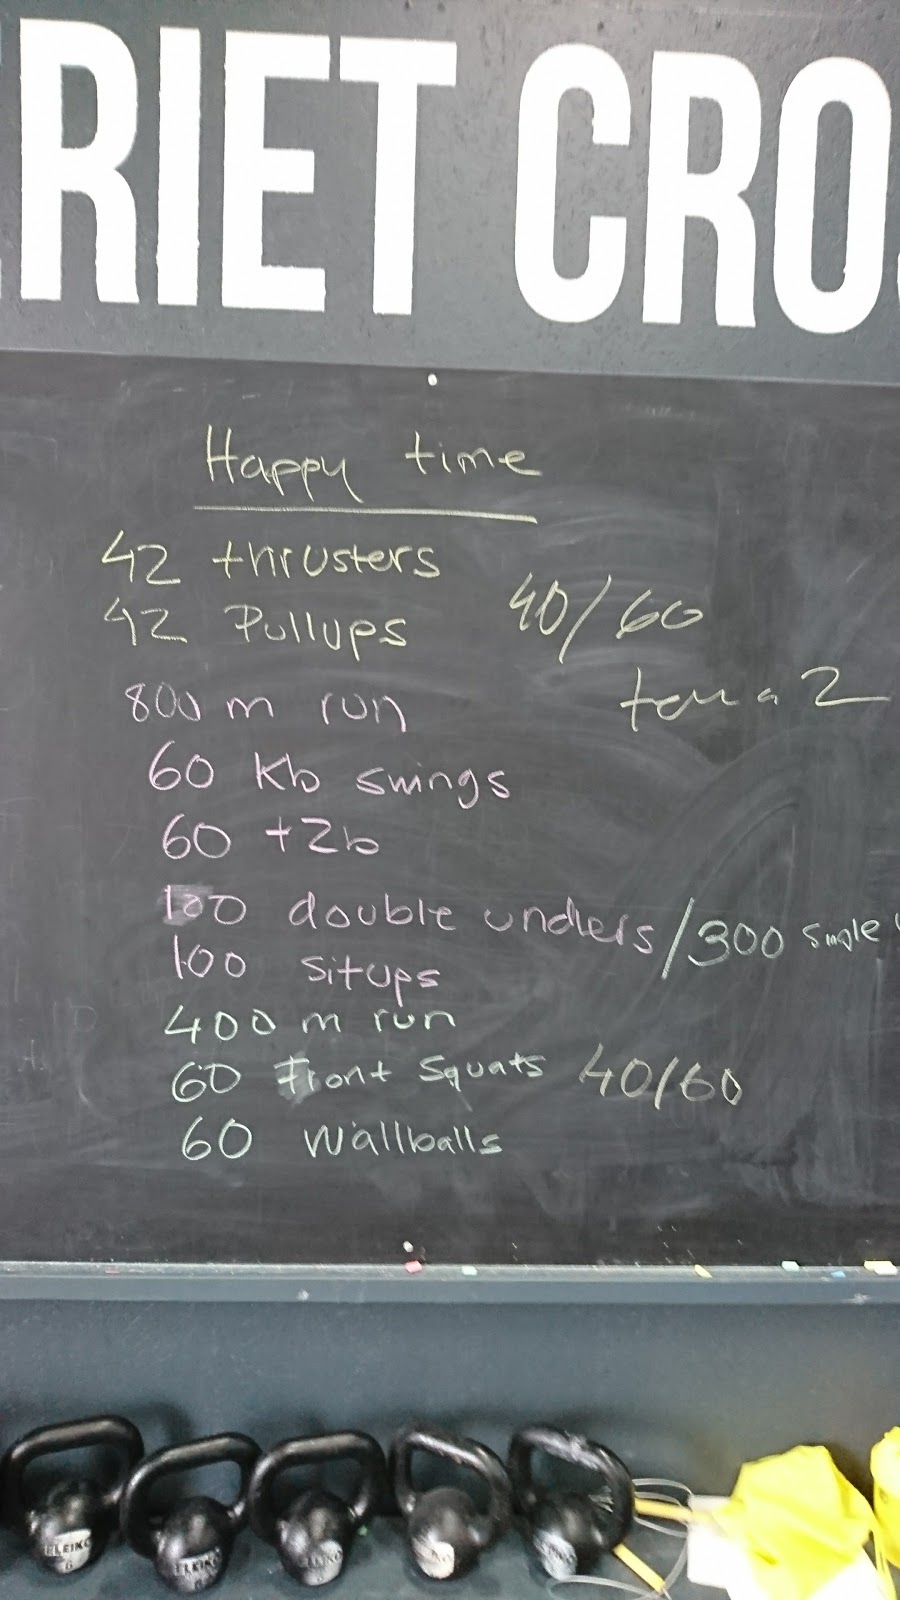 RIET CRO
Happy time
42 thrusters
42 Pullups
40/60
800 m run
60 Kb swings
60 t2b
100 double unders/300 single
100 situps
400 m run
60 Front Squats 40/60
60 Wallballs
ELEIKO
ELEIKO
ELEIKO